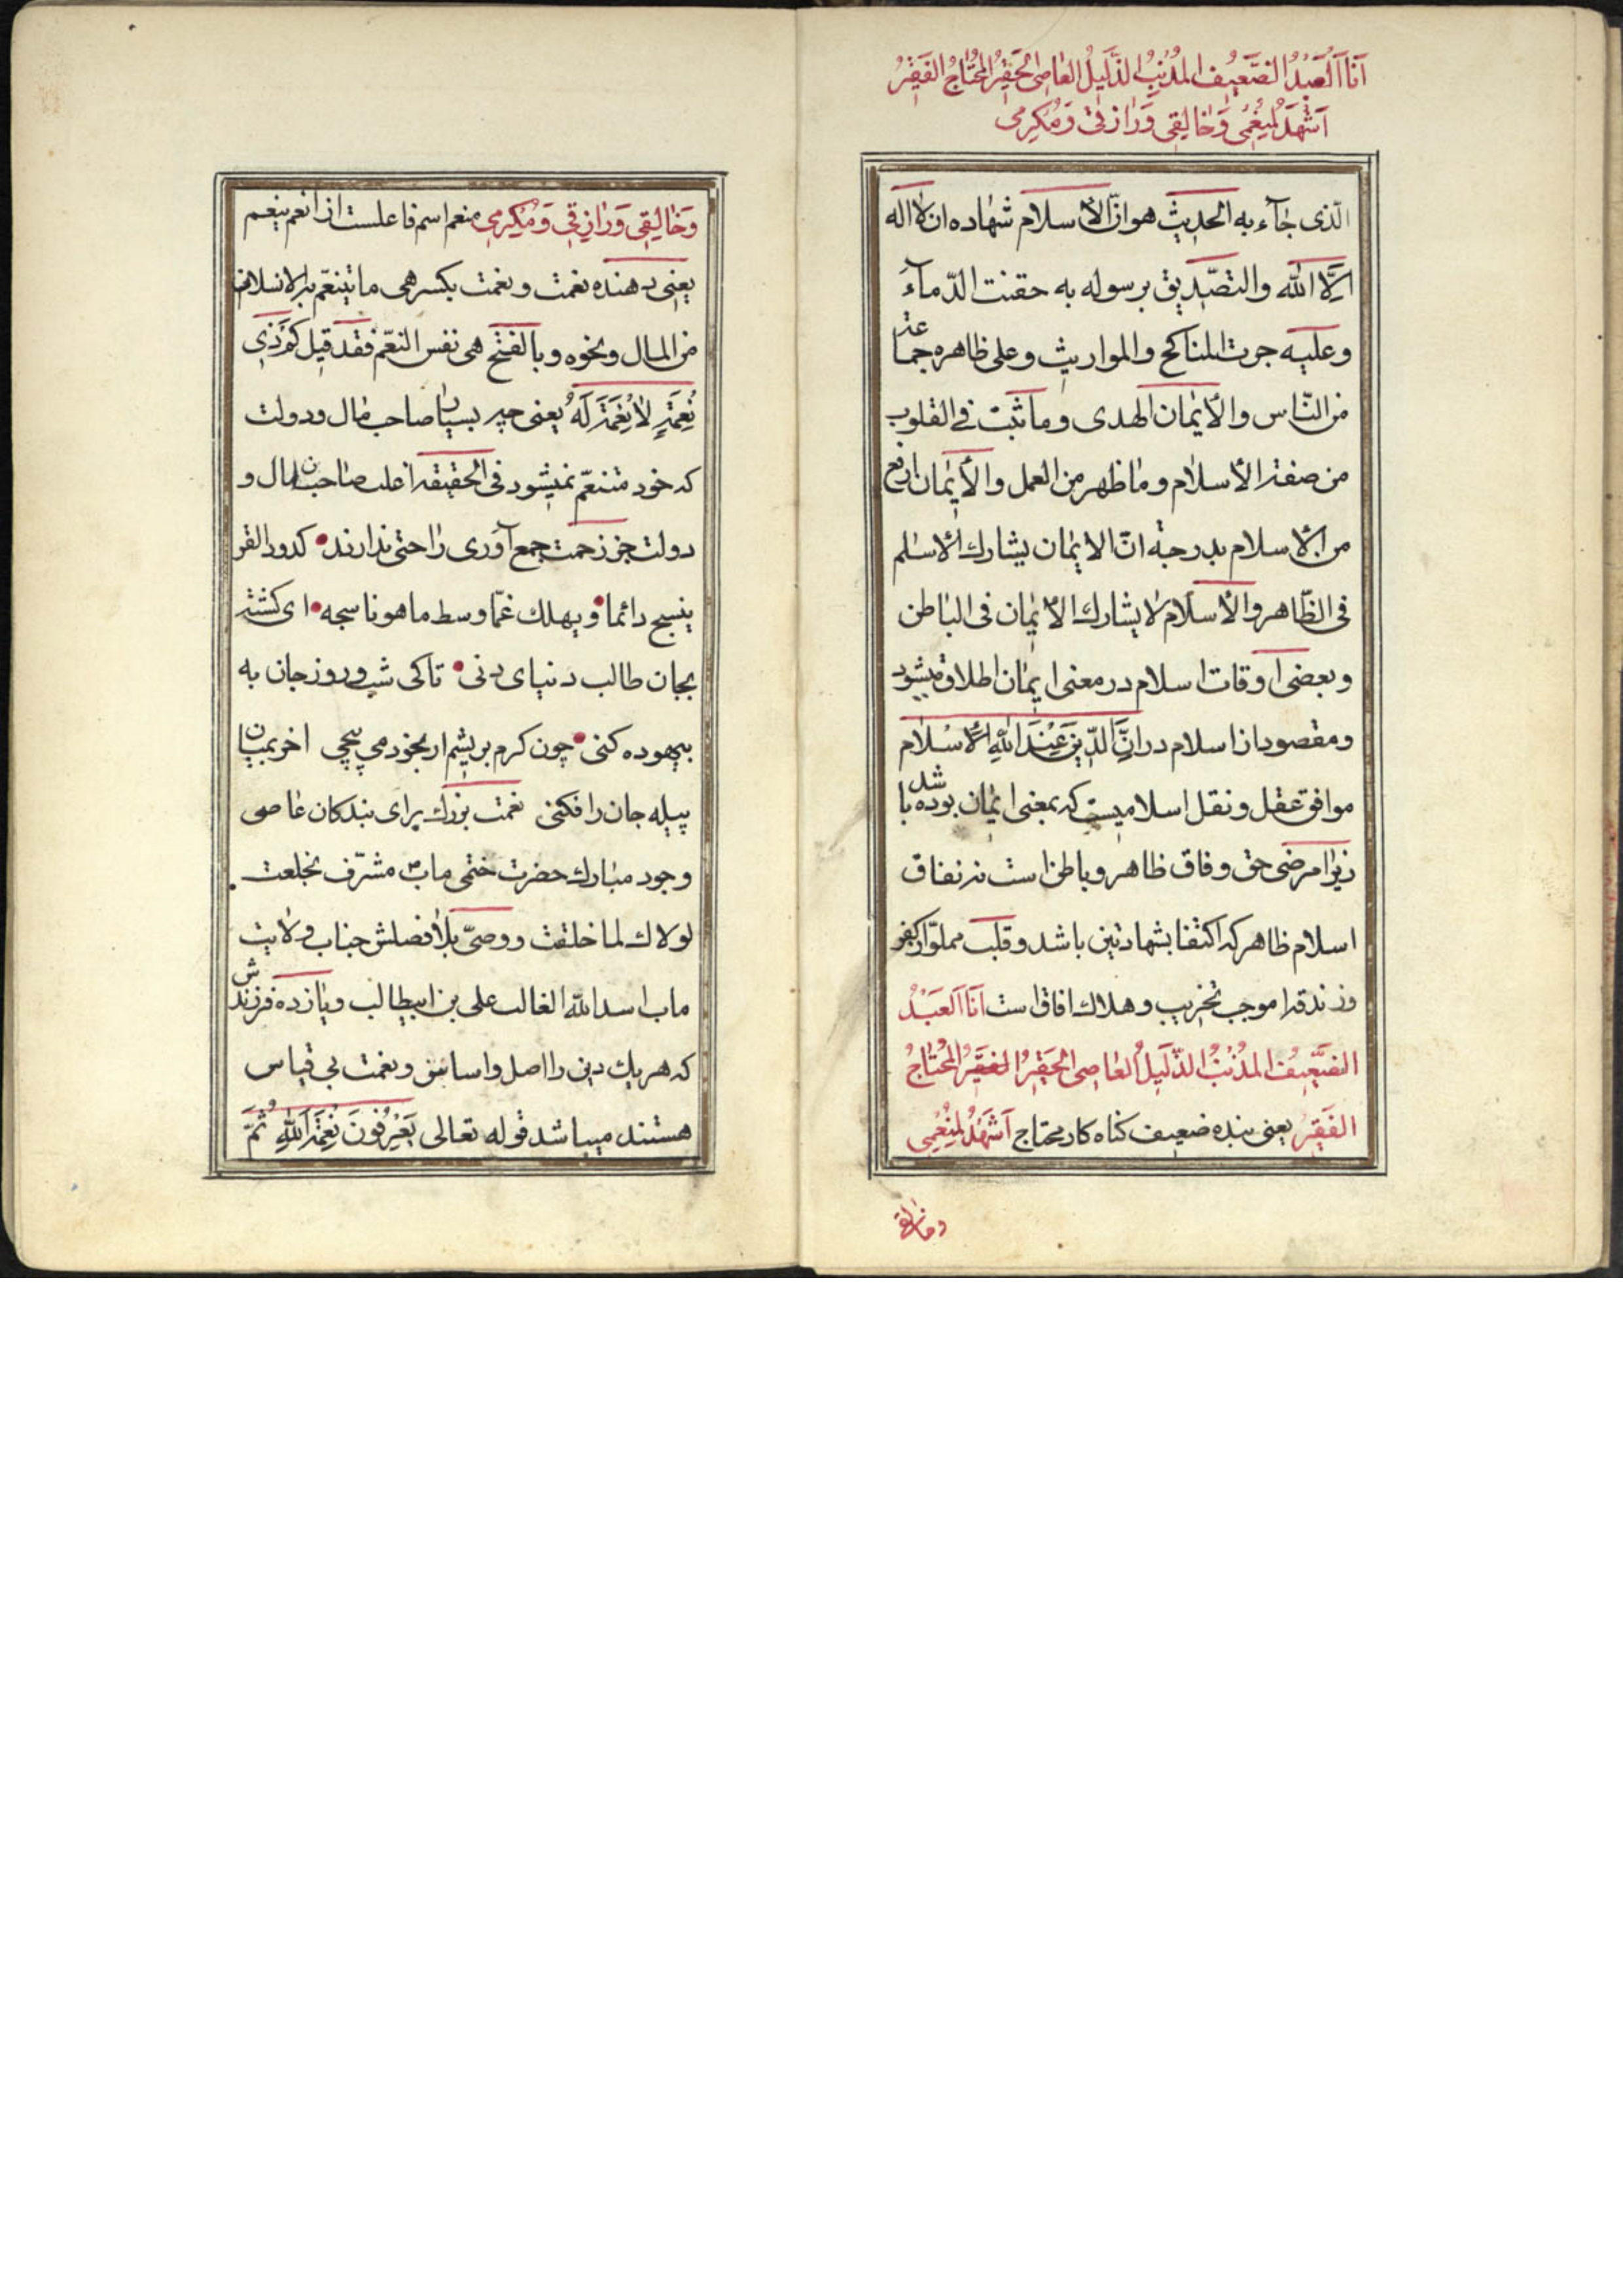 اَنَا اَلْعَبْدُ الضَّعِیفُ المُذْنِبُ الذَّلِیلُ العَاصِی الحَقِیرُ المُحْتَاجُ الفَقِیرُ
اَشْهَدُ لِمُنْعِمِی وَخَالِقِی وَرَازِقِی وَمُکْرِمِی
الّذی جآء به الحدیث هو انّ الأسلام شهاده ان لا اله
اِلَّا الله والتصّدیق برسوله به حقنت الدّمآءَ
وعلیه جرت المناکح والمواریث وعلی ظاهره جماعة
من النّاس والأیمان الهدی وما ثبت فی القلوب
من صفة الأسلام وما ظهر من العمل والأیمان ارفع
من الأسلام بدرجة انّ الایمان یشارك الأسلم
فی الظّاهر والأسلام لا یشارك الأیمان فی الباطن
وبعضی اوقات اسلام در معنی ایمان اطلاق میشود
ومقصود از اسلام در اِنَّ الدّینَ عِنْدَ اللهِ الْاِسْلام
موافق عقل ونقل اسلامیست که بمعنی ایمان بوده باشد
زیرا مرضی حق وفاق ظاهر وباطن است نه نفاق
اسلام ظاهر که اکتفا بشهادتین باشد وقلب مملوّ از کفر
وزندقه موجب تخریب وهلاك افاق است اَنَا اَلعَبْدُ
الضَّعِیفُ المُذْنِبُ الذَّلِیلُ العَاصِی الحَقِیرُ الفَقِیرُ المُحْتَاجُ
الفَقِیرُ یعنی بنده ضعیف کناه کار محتاج اَشْهَدُ لِمُنْعِمِی
وخالقی
وَخَالِقِی وَرَازِقِی وَمُکْرِمِی منعم اسم فاعلست از انعم ینعم
یعنی دهنده نعمت ونعمت بکسر هی ما یتنعّم به الانسان
من المال ونحوه وبالفتح هی نفس التنعّم فقد قیل کَمْ ذِی
نِعْمَةٍ لَا نَعْمَةَ لَهُ یعنی چه بسیار صاحب مال ودولت
که خود متنعّم نمیشود فی الحقیقه اغلب صاحبان مال و
دولت جز زحمت جمع آوری راحتی ندارند کدود القز
ینسج دائما ویهلك غمّا وسط ما هو ناسجه ای کشته
بجان طالب دنیای دنی تا کی شب وروز جان به
بیهوده کنی چون کرم بریشم ار بخود می پیچی اخر بمیان
پیله جان را فکنی نعمت بزرك برای بندکان عاصی
وجود مبارك حضرت ختمی ماب مشرّف بخلعت
لولاك لما خلقت ووصیّ بلا فصلش جناب ولایت
ماب اسد الله الغالب علی بن ابیطالب ویازده فرزندش
که هریك دین را اصل واساس ونعمت بی قیاس
هستند میباشد قوله تعالی یَعْرِفُونَ نِعْمَةَ اللهِ ثُمَّ